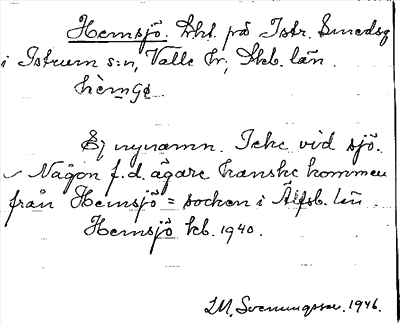 Hemsjö. Lht. på Istr. Smedsg
i Istrum s:n, Valle hr; Skb. län.
hèmɡø
Ej nynamn. Icke vid sjö.
Någon f.d. ägare kanske kommen
från Hemsjö = socken i Älfsb. län.
Hemsjö kb. 1940.
1946.